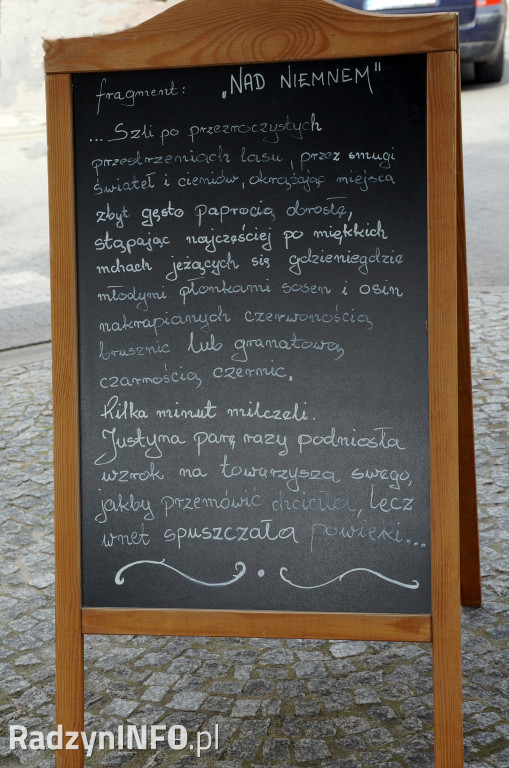 fragment: „NAD NIEMNEM"
... Szli po przezroczystych
przestrzeniach lasu, przez smugi
świateł i cieniów, okrążając miejsca
zbyt gęsto paprocią obrosłe,
stąpając najczęściej po miękkich
mchach jeżących się gdzieniegdzie
młodymi płonkami sosen i osin
nakrapianych czerwonością
brusznic lub granatową
czarnością czernic.
kilka minut milczeli.
Justyna parę razy podniosła
wzrok na towarzysza swego,
jakby przemówić chciała, lecz
wnet spuszczała powieki...
RadzynINFO.pl